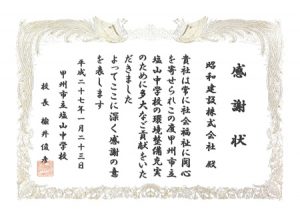 感謝状
昭和建設株式会社 殿
貴社は常に社会福祉に関心
を寄せられこの度甲州市立
塩山中学校の環境整備充実
のために多大なご貢献をいた
だきました
よってここに深く感謝の意
を表します
平成二十七年一月二十三日
甲州市立塩山中学校
校長 楡井俊彦